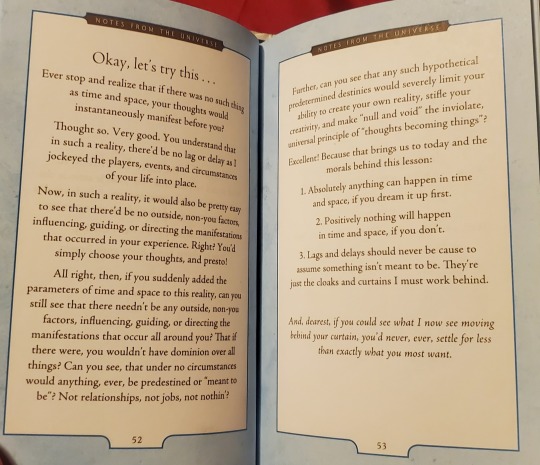 NOTES FROM THE UNIVERSE
Okay, let's try this . . .
Ever stop and realize that if there was no such thing
as time and space, your thoughts would
instantaneously manifest before you?
Thought so. Very good. You understand that
in such a reality, there'd be no lag or delay as I
jockeyed the players, events, and circumstances
of your life into place.
Now, in such a reality, it would also be pretty easy
to see that there'd be no outside, non-you factors,
influencing, guiding, or directing the manifestations
that occurred in your experience. Right? You'd
simply choose your thoughts, and presto!
All right, then, if you suddenly added the
parameters of time and space to this reality, can you
still see that there needn't be any outside, non-you
factors, influencing, guiding, or directing the
manifestations that occur all around you? That if
there were, you wouldn't have dominion over all
things? Can you see, that under no circumstances
would anything, ever, be predestined or "meant to
be"? Not relationships, not jobs, not nothin'?
52
NOTES FROM THE UNIVERSE
Further, can you see that any such hypothetical
predetermined destinies would severely limit your
ability to create your own reality, stifle your
creativity, and make "null and void" the inviolate,
universal principle of "thoughts becoming things"?
Excellent! Because that brings us to today and the
morals behind this lesson:
1. Absolutely anything can happen in time
and space, if you dream it up first.
2. Positively nothing will happen
in time and space, if you don't.
3. Lags and delays should never be cause to
assume something isn't meant to be. They're
just the cloaks and curtains I must work behind.
And, dearest, if you could see what I now see moving
behind your curtain, you'd never, ever, settle for less
than exactly what you most want.
53